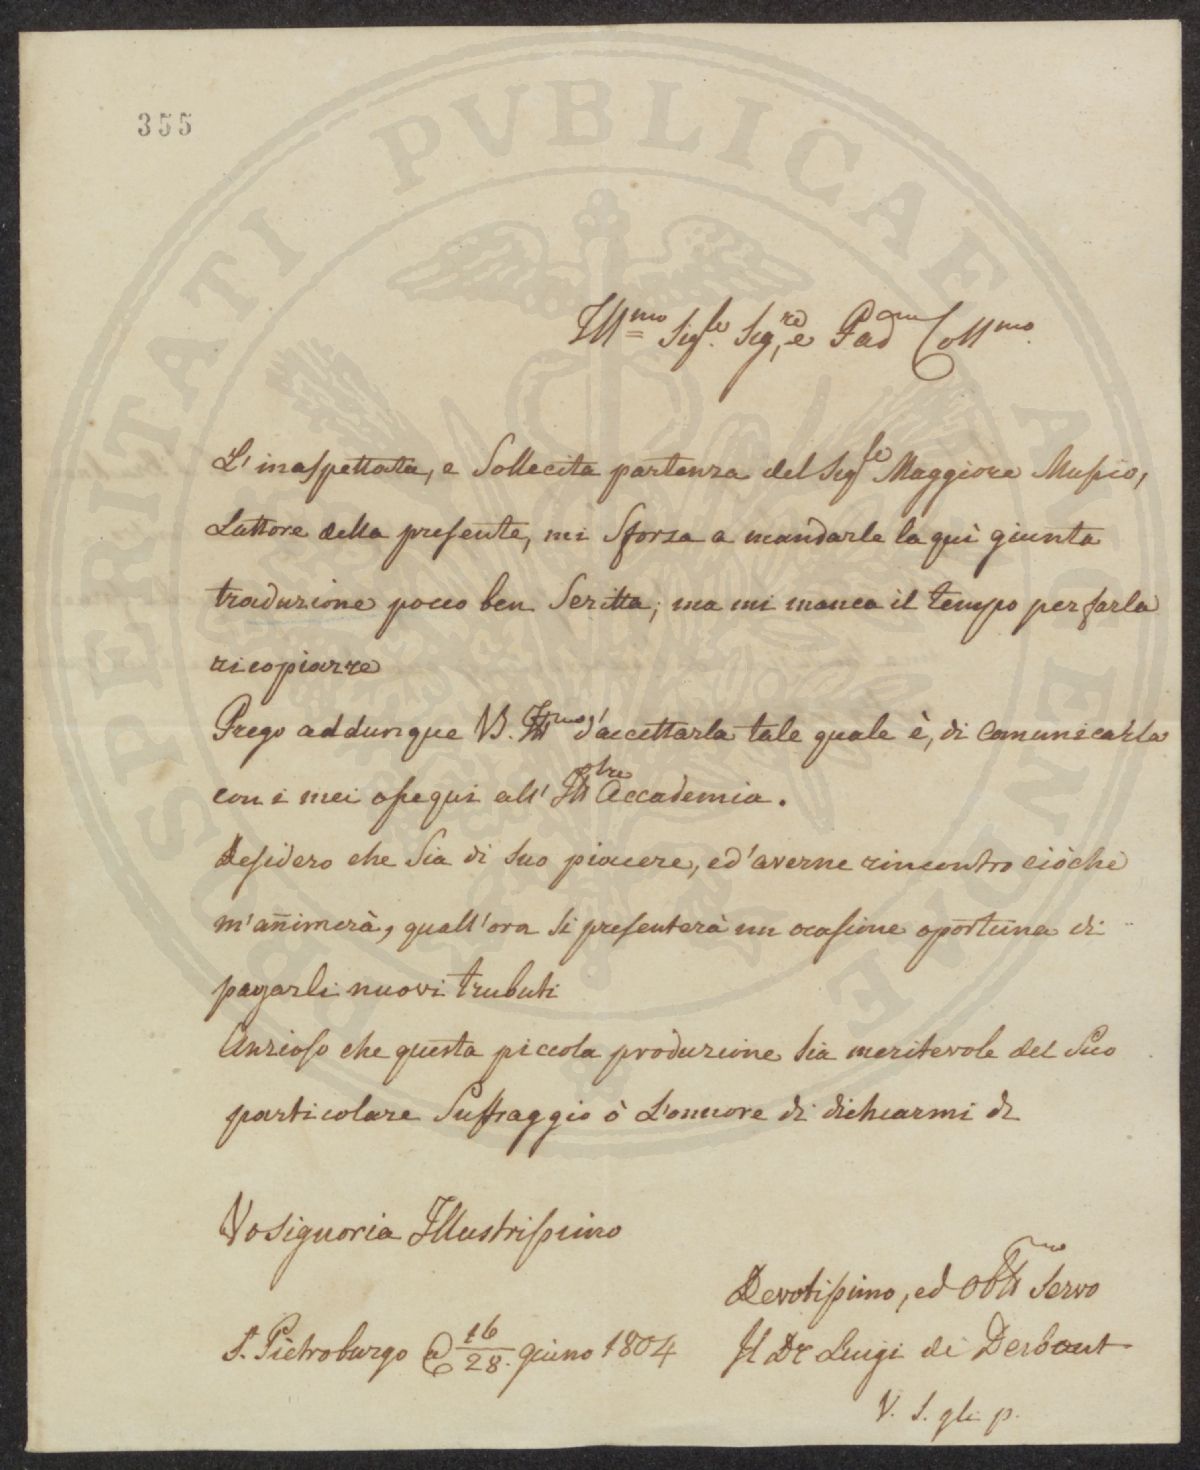 355
PROSPERITATI PVBLICAE AVGENDAE
Ill.mo Sig.re Sig.re e Pad.rone Coll.mo
L'inaspettata, e Sollecita partenza del Sig.re Maggiore Musio,
Lattore della presente, mi Sforza a mandarle la qui giunta
traduzione poceo ben Scritta; ma mi manca il tempo per farla
ricopiarre
Prego addunque V.S. Ill.ma d'accettarla tale quale è, di comunicarla
con i mei osequi all' Ill.tre Accademia.
Desidero che Sia di Suo piacere, ed'averne rincontro ciòche
m'animerà, quall'ora Si presenterà un ocasione oportuna di
pagarli nuovi trubuti
Anzioso che questa piccola produzione Sia meritevole del Suo
particolare Suffraggio ò L'onnore di dichiarmi di
Vosignoria Illustrissimo
Devotissimo, ed Obb.mo Servo
S. Pietroburgo a 16/28. giuno 1804
Il Dr Luigi de
V. S. gli p.